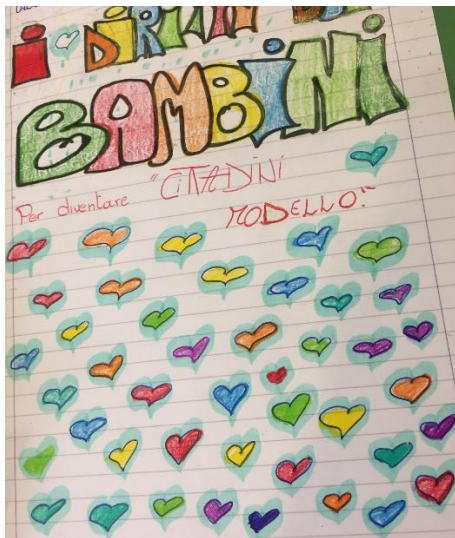 I DIRITTI DEI
BAMBINI
Per diventare "CITTADINI
MODELLO."